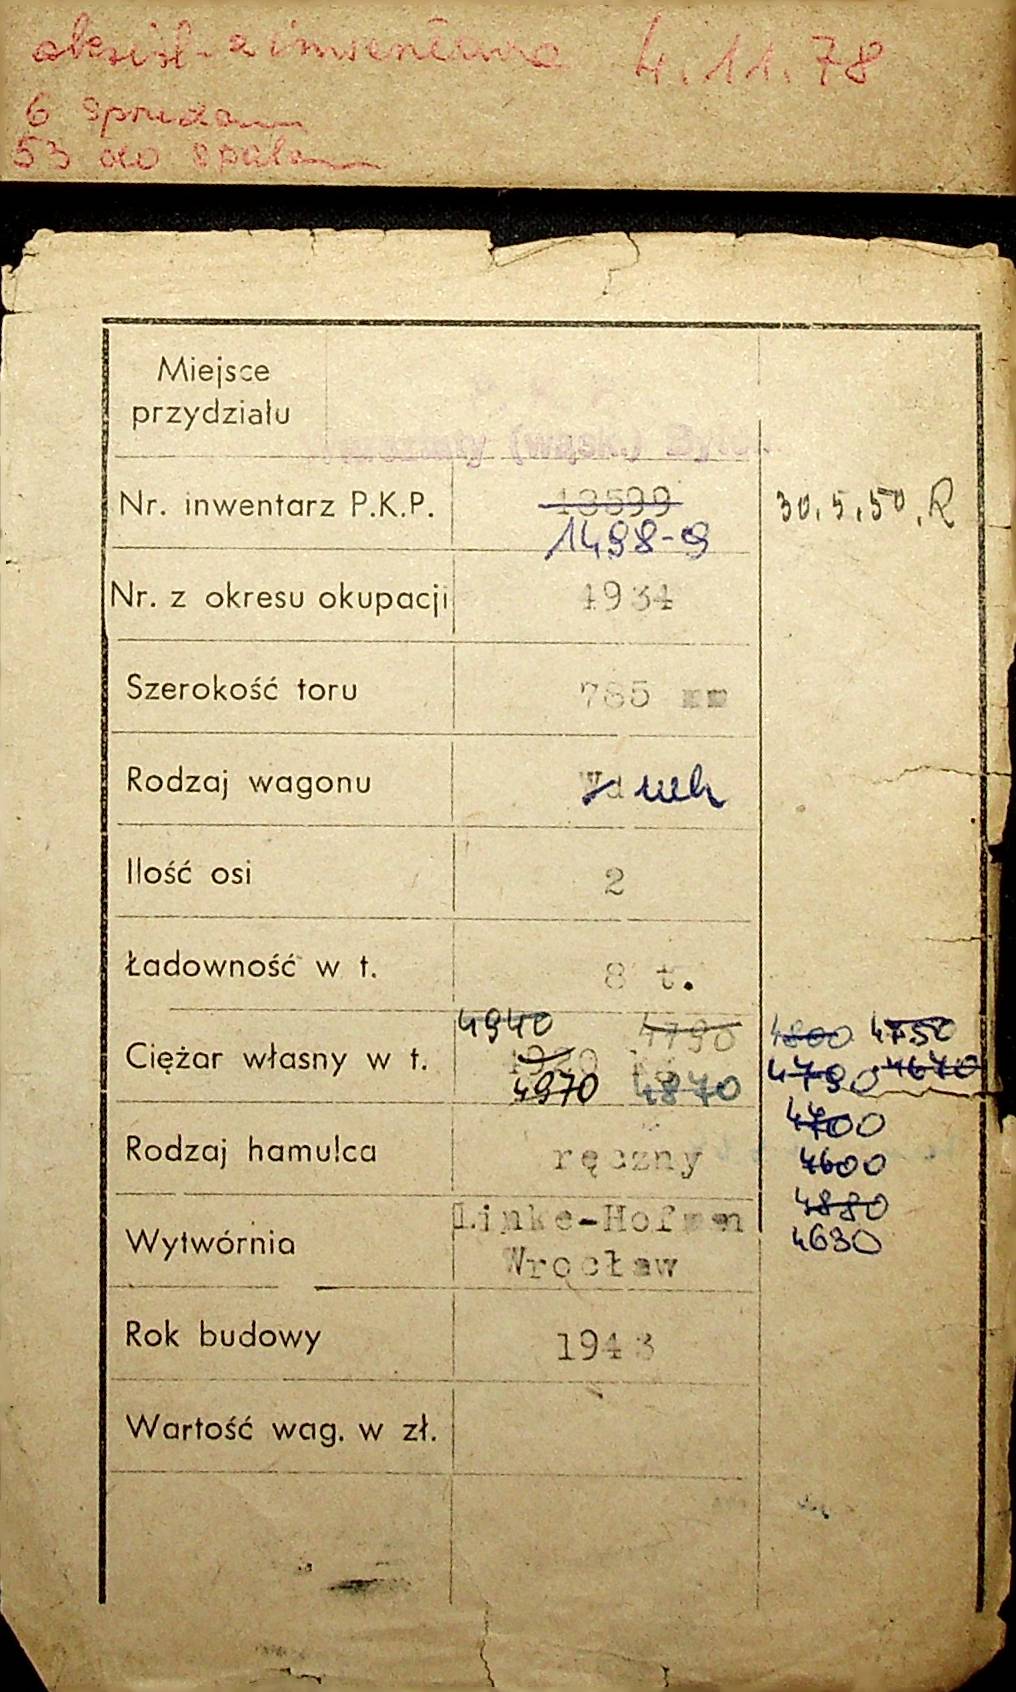 4.11.78
6
53 do
Miejsce
przydziału
Warsztaty (wąsk.)
Nr. inwentarz P.K.P. 13599 30.5.50. R
1498-9
Nr. z okresu okupacji 1934
Szerokość toru 785 mm
Rodzaj wagonu Wd
Ilość osi 2
Ładowność w t. 8 t.
4940 4790 4800 4750
Ciężar własny w t. kg 4790 4670
4970 4870
4700
Rodzaj hamulca ręczny 4600
Linke-Hofman 4880
Wytwórnia 4630
Wrocław
Rok budowy 1943
Wartość wag. w zł.